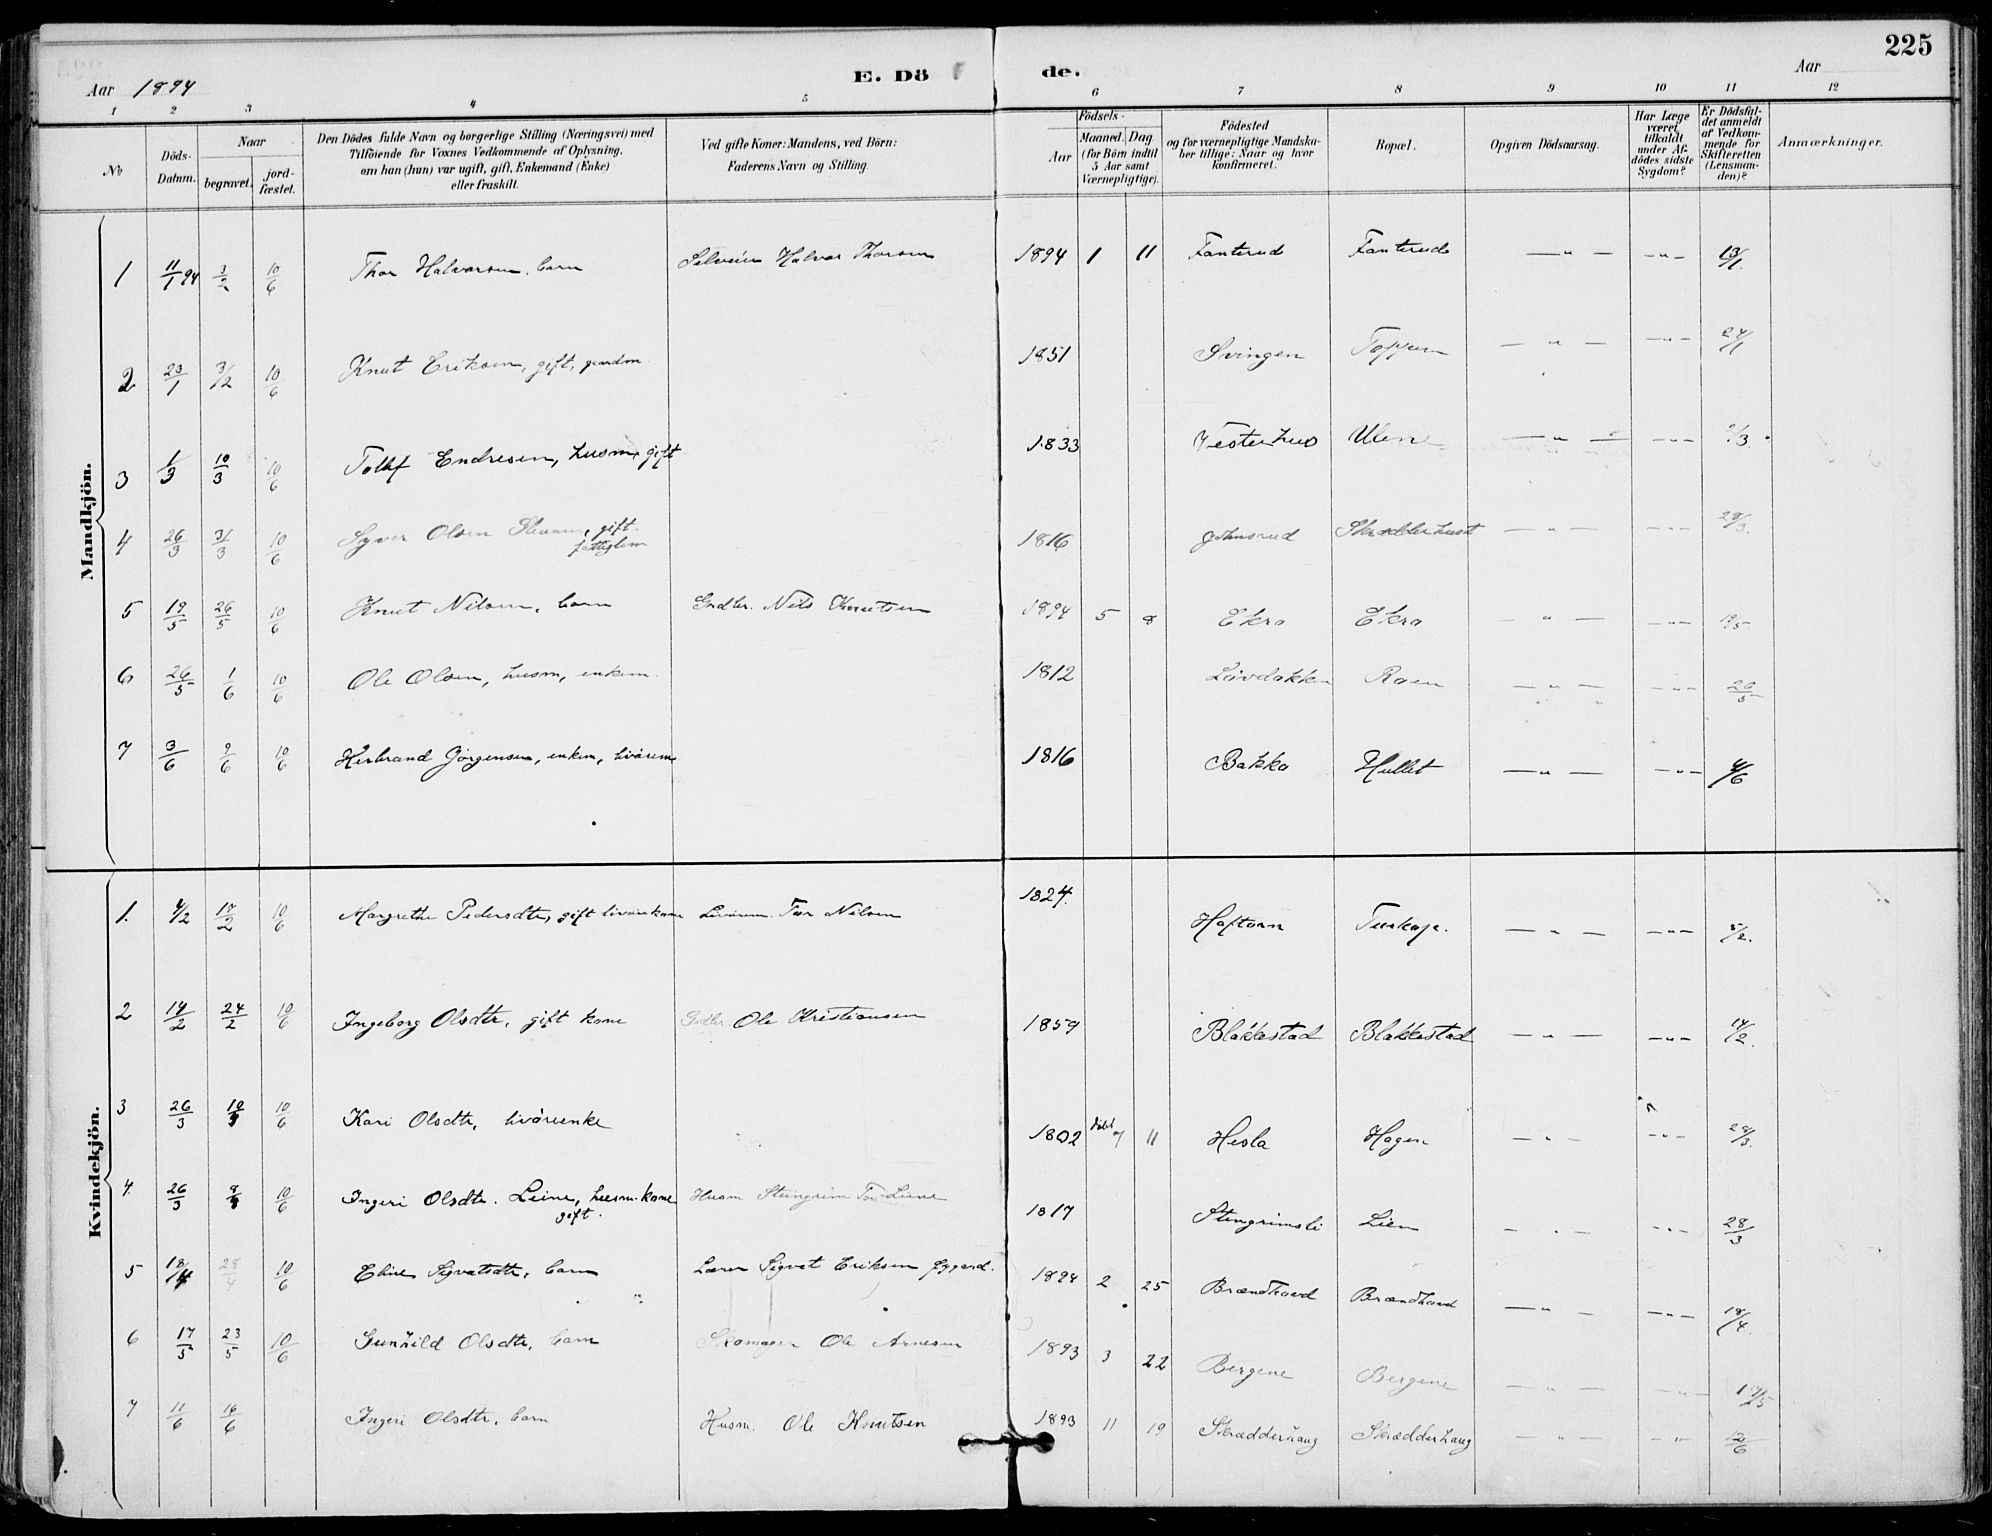 225
Aar 1894 E. Dö de. Aar
1 2 3 4 5 6 7 8 9 10 11 12
No
Döds-Datum.
Naar
begravet.
jord-fæstet.
Den Dödes fulde Navn og borgerlige Stilling (Næringsvei) med
Tilföiende for Voxnes Vedkommende af Oplysning,
om han (hun) var ugift, gift, Enkemand (Enke)
eller fraskilt.
Ved gifte Koner: Mandens, ved Börn:
Faderens Navn og Stilling.
Födsels-
Aar
Maaned. Dag
(for Börn indtil
5 Aar samt
Værnepligtige).
Födested
og for værnepligtige Mandska-
ber tillige: Naar og hvor
konfirmeret.
Bopæl.
Opgiven Dödsaarsag.
Har Læge
været
tilkaldt
under Af-
dödes sidste
Sygdom?
Er Dödsfal-
det anmeldt
af Vedkom-
mende for
Skifteretten
(Lensman-
den)?
Anmærkninger.
Mandkjön.
1 11/1 94 3/2 10/6 Thor Halvorsen, barn Selveier Halvor Thorsen 1894 1 11 Fanterud Fanterud — " — — " — 13/1.
2 23/1 3/2 10/6 Knut Eriksen, gift, gaardm. 1851 Svingen — " — — " — 24/1
3 1/3 10/3 10/6 Tollef Endresen, husm, gift 1833 — " — — " — /3.
4 26/3 31/3 10/6 Syver Olsen gift. 1816 — " — — " — 28/3.
5 19/5 26/5 10/6 Knut Nilsen, barn Gndbr. Nils Knutsen 1894 5 8 Ekra Ekra — " — — " — 19/5.
6 26/5 1/6 10/6 Ole Olsen, husm, enkem. 1812 Lövdokken Roen — " — — " — 26/5
7 3/6 9/6 10/6 Herbrand Gjörgensen, enkem, livörem 1816 Bakko Hullet — " — — " — 4/6
Kvindekjön.
1. 4/2 17/2 10/6 Margrethe Pedersdtr, gift livörekone Livörem. Tor Nilsen 1824. Haftorn — " — — " — 5/2.
2 14/2 24/2 10/6 Ingeborg Olsdtr, gift kone Gndbr. Ole Kristiansen 1859 Blakkestad Blakkestad — " — — " — 14/2.
3 26/3 10/3 10/6 Kari Olsdtr, livörenke 1802 11 Hesla Hagen — " — — " — 28/3.
4. 26/3 10/6 Ingeri Olsdtr. Leine, husm. kone
gift. Husm Stengrim Leine 1817 Stengrimsli Lien — " — — " — 28/3
5 18/4 28/4 10/6 Sigvatsdtr, barn Lærer Sigvat Eriksen 1894 2 25 Brændhaard Brændhaard — " — — " — 18/4.
6 17/5 23/5 10/6 Gunhild Olsdtr, barn Skomager Ole Arnesen 1893 3 22 Bergene Bergene — " — — " — 19/5
7 11/6 16/6 Ingeri Olsdtr, barn Husm. Ole Knutsen 1893 11 19 Skrædderhaug Skrædderhaug — " — — " — 12/6